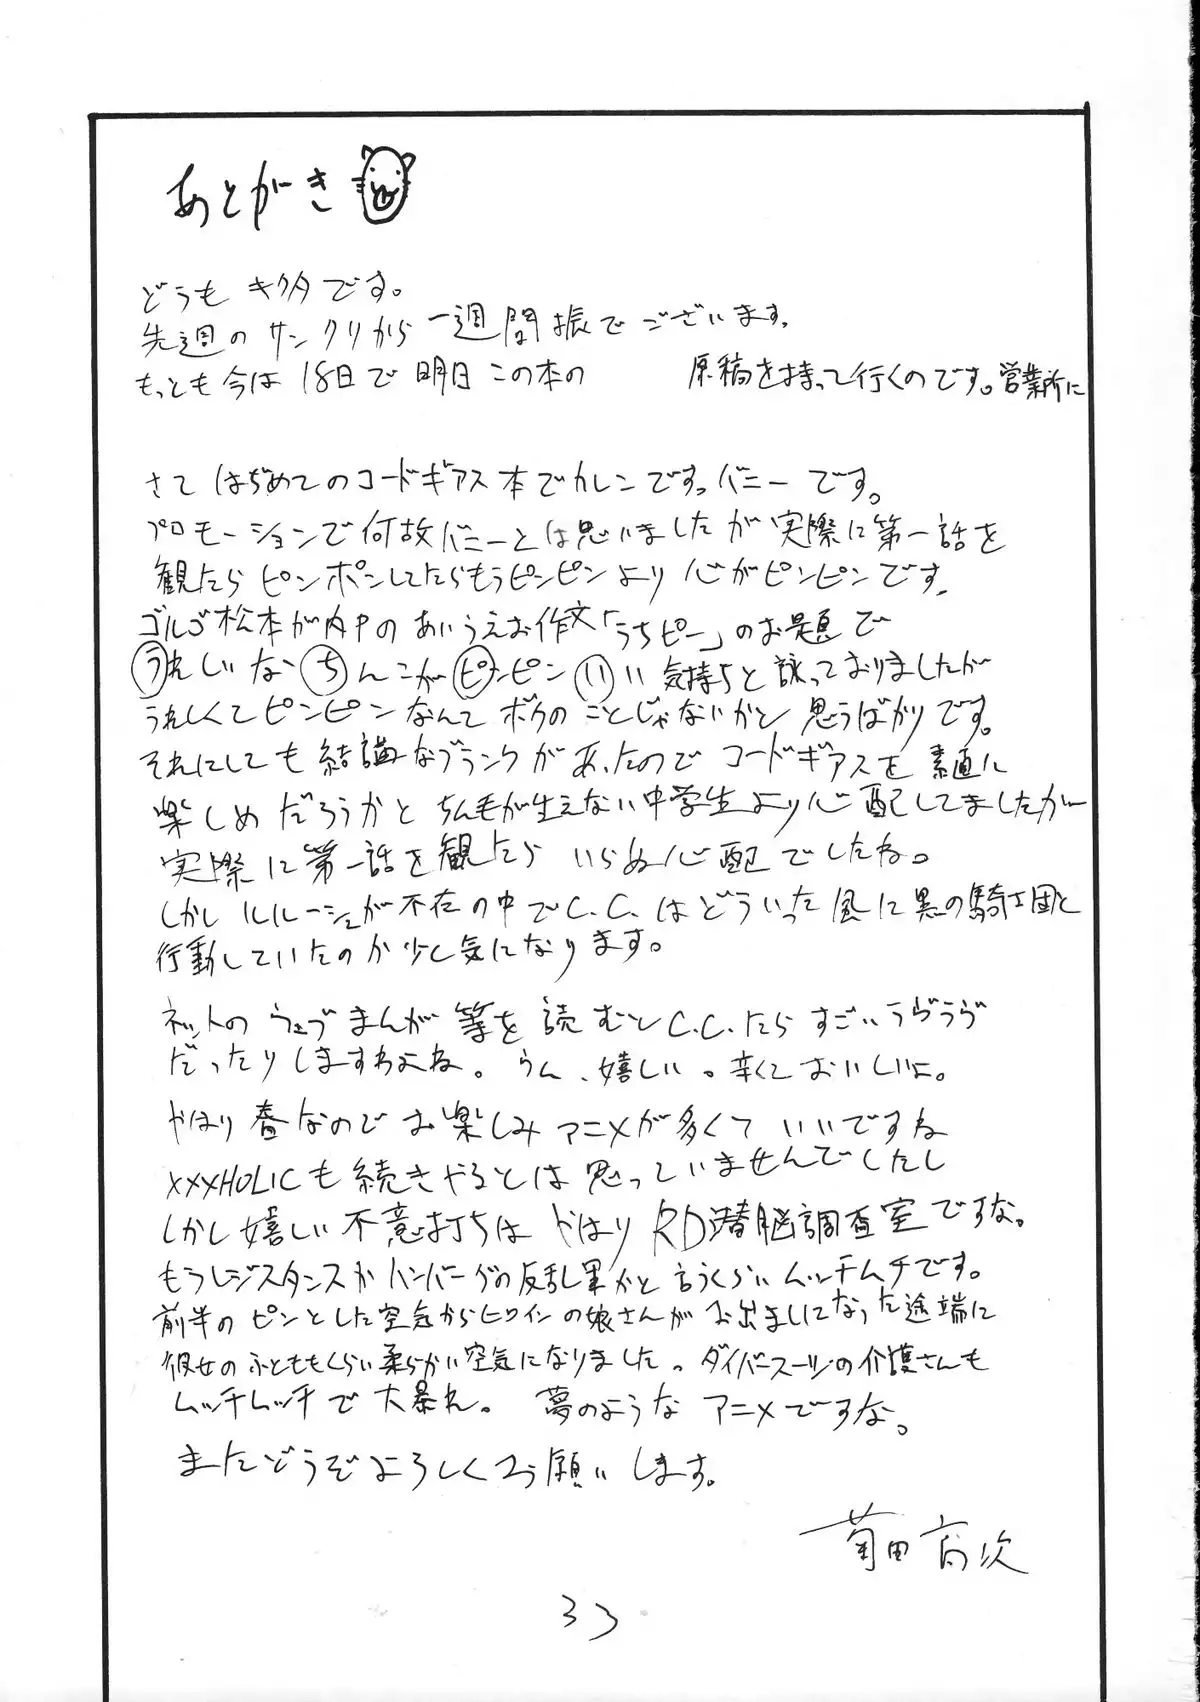 あとがき
どうも キクタです。
先週の サンクリから 一週間振でございます。
もっとも 今は 18日で 明日 この本の 原稿を持って行くのです。営業所に
さて はぢめての コードギアス本で カレンですっ バニーです。
プロモーションで 何故バニーとは思いましたが 実際に第一話を
観たら ピンポンしてたらもうピンピンより 心がピンピンです。
ゴルゴ松本が内Pの あいうえお作文「うちピー」のお題で
うれしいな ちんこが ピンピン いい 気持ちと 詠っておりましたが
うれしくて ピンピン なんて ボクの ことじゃないかと 思うばかりです。
それにしても 結講なブランクが あったので コードギアスを 素直に
楽しめ だろうかと ちん毛が生えない 中学生より心配してましたが
実際に 第一話を 観たら いらぬ心配でしたね。
しかし ルルーシュが 不在の中で C.C.はどういった 風に 黒の騎士団と
行動していたのか 少し気になります。
ネットの ウェブまんが 等を 読むと C.C.たら すごいうらうら
だったりしますわよね。 うん、嬉しい。辛くておいしいよ。
やはり 春なので お楽しみ アニメが 多くて いいですね
xxxHOLICも 続きやるとは 思っていませんでしたし
しかし 嬉しい 不意打ちは やはり RD潜脳調査室ですな。
もうレジスタンスか ハンバーグの反乱軍かと 言うくらい ムッチムチです。
前半の ピンとした 空気から ヒロインの娘さんが お出ましになった途端に
彼女の ふとももくらい 柔らかい空気になりました。ダイバースーツの 介護さんも
ムッチムッチで 大暴れ。 夢のような アニメですな。
またどうぞよろしく お願いします。
菊田高次
33